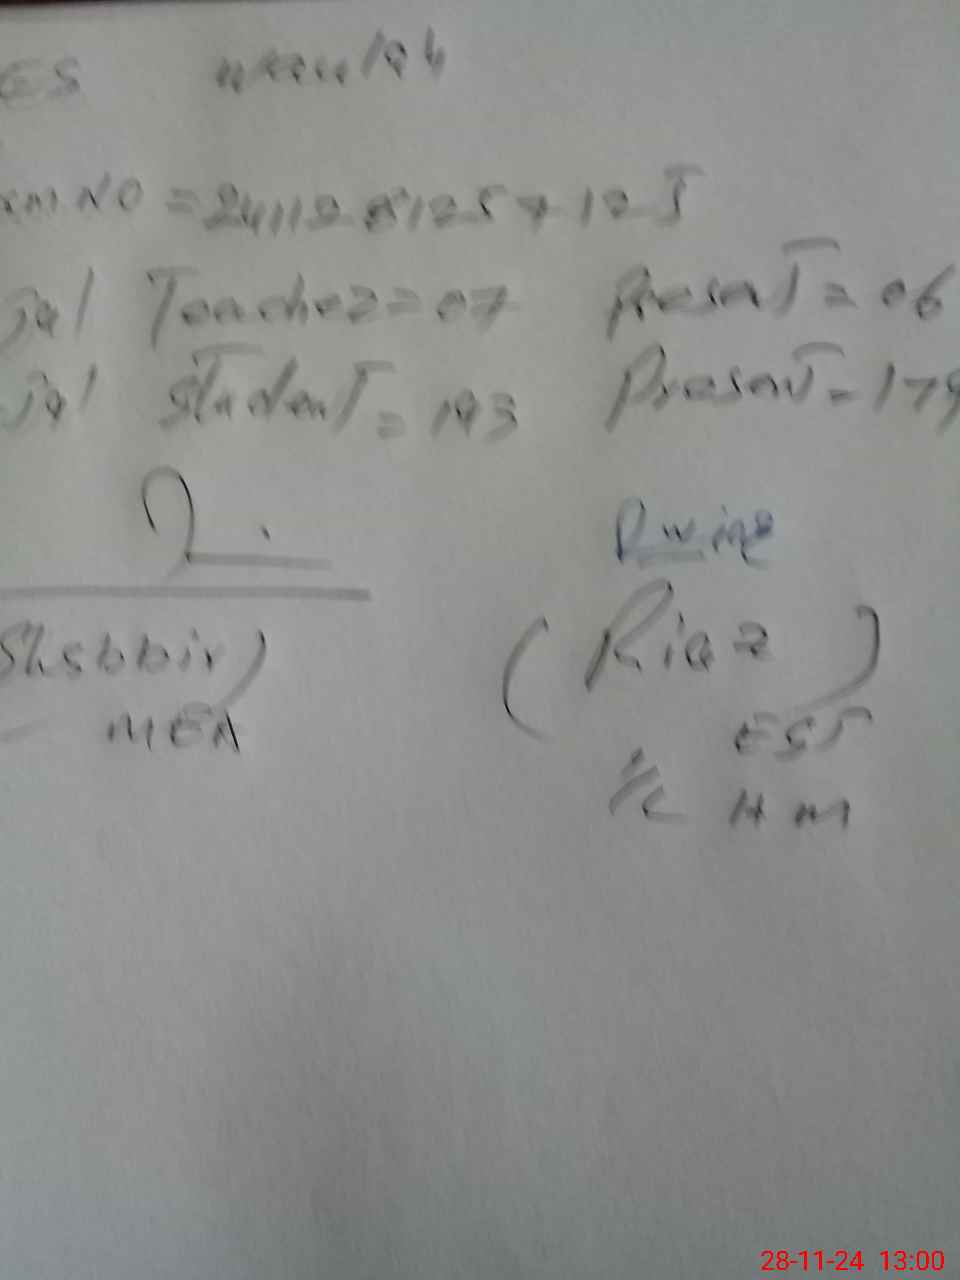 ES
NO = 2411281257125
Teacher = 07 Present = 06
Student = 193 Present - 179
Shabbir)
MEA
(Riaz)
EST
I/C HM
28-11-24 13:00